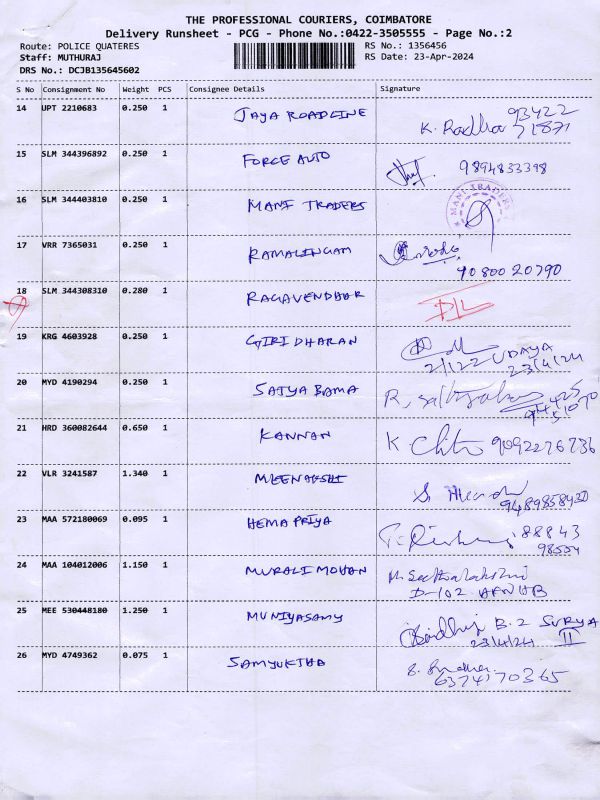 THE PROFESSIONAL COURIERS, COIMBATORE
Delivery Runsheet - PCG - Phone No.:0422-3505555 - Page No.:2
Route: POLICE QUATERES RS No.: 1356456
Staff: MUTHURAJ RS Date: 23-Apr-2024
DRS No.: DCJB135645602
S No Consignment No Weight PCS Consignee Details Signature
14 UPT 2210683 0.250 1 JAYA ROADLINE K. Radha 93422
71871
15 SLM 344396892 0.250 1 FORCE AUTO 9894833398
16 SLM 344403810 0.250 1 MANI TRADERS MANI TRADERS
17 VRR 7365031 0.250 1 RAMALINGAM
9080020790
18 SLM 344308310 0.280 1 RAGAVENDHAR
19 KRG 4603928 0.250 1 GIRIDHARAN
2/122 UDAYA
23/4/24
20 MYD 4190294 0.250 1 SATYA BAMA R.
21 HRD 360082644 0.650 1 KANNAN K 9092276736
22 VLR 3241587 1.340 1 MEENAKSHI S.
9489858420
23 MAA 572180069 0.095 1 HEMA PRIYA 88843
24 MAA 104012006 1.150 1 MURALI MOHAN M. Seethalakshmi
D-102
25 MEE 530448180 1.250 1 MUNIYASAMY B.2 SURYA
23/4/24 II
26 MYD 4749362 0.075 1 SAMYUKTHA S.
6374170365